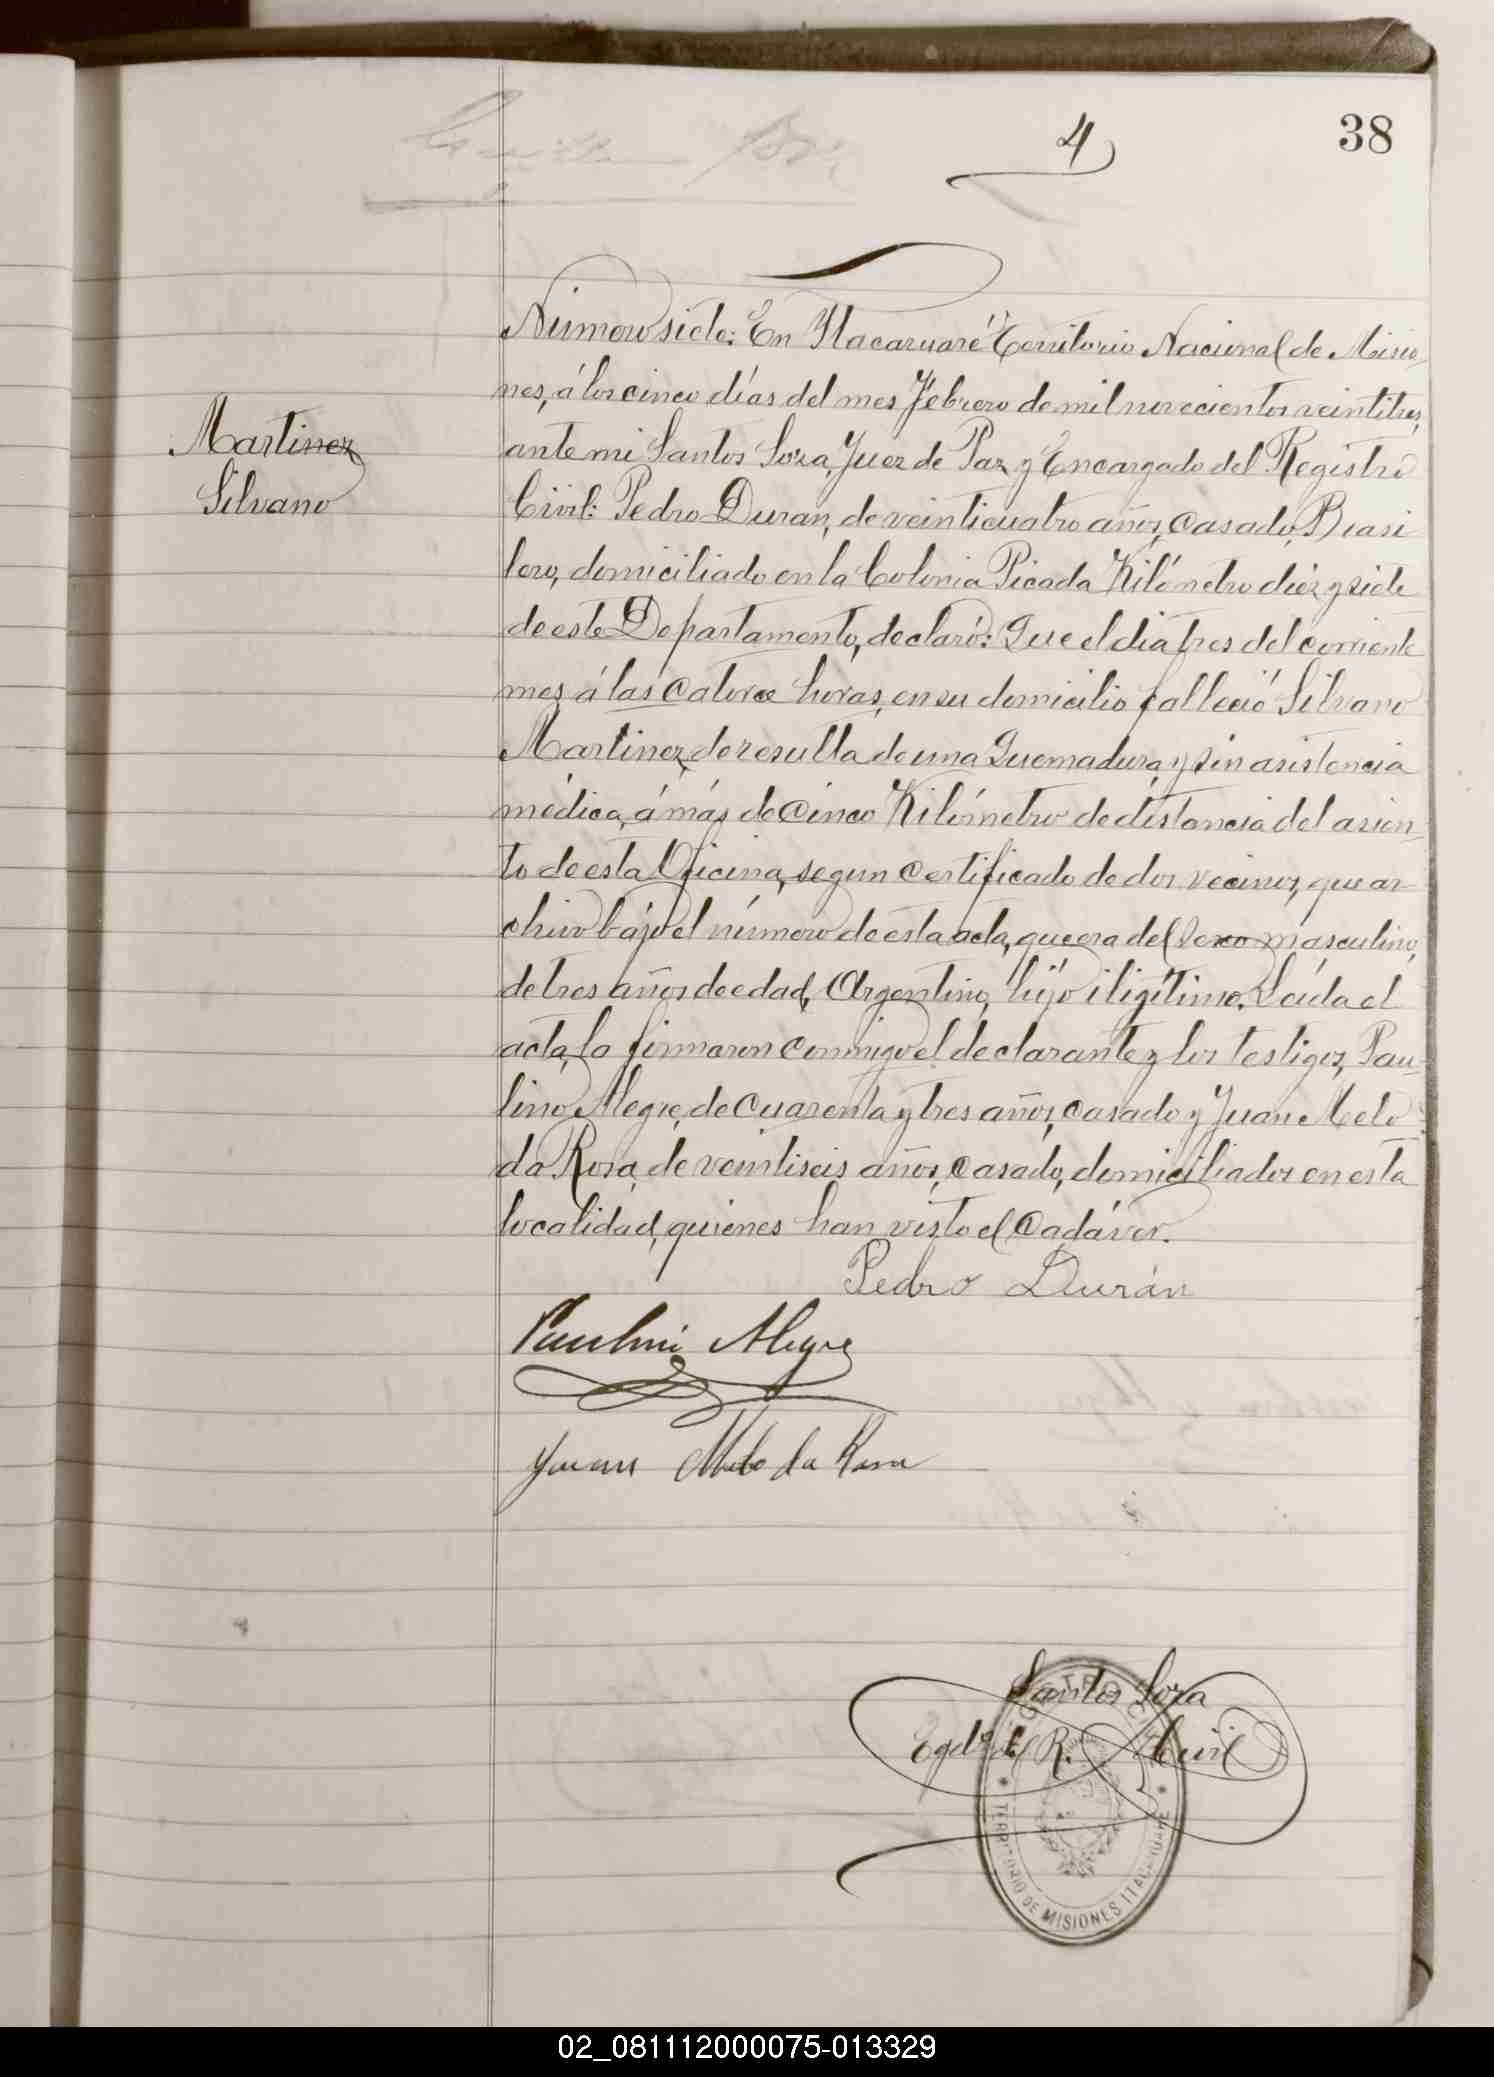 38
4
Número siete: En Itacaruaré Territorio Nacional de Misio-
nes, á los cinco días del mes Febrero de mil novecientos veintitres,
Martinez
Silvano
ante mi Santos Soza, Juez de Paz y Encargado del Registro
Civil: Pedro Duran, de veinticuatro años, Casado, Brasi
lero, domiciliado en la Colonia Picada Kilómetro diez y siete
de este Departamento, declaró: Que el día tres del corriente
mes á las Catorce horas, en su domicilio falleció Silvano
Martinez, de resulta de una Quemadura, y sin asistencia
médica, á más de Cinco Kilómetro de distancia del asien-
to de esta Oficina, segun Certificado de dos vecinos, que ar-
chivo bájo el número de esta acta, que era del Sexo masculino,
de tres años de edad, Argentino, hijo iligítimo. Leída el
acta, la firmaron conmigo el declarante y los testigos, Pau-
lino Alegre, de Cuarenta y tres años, Casado y Juan Melo
da Rosa, de veintiseis años, Casado, domiciliados en esta
localidad, quienes han visto el Cadáver.
Pedro Durán
Paulini Alegre
Juan Melo da Rosa
Santos Soza
Egdo del R. Civil
TERRITORIO DE MISIONES ITACARUARE
02_081112000075-013329